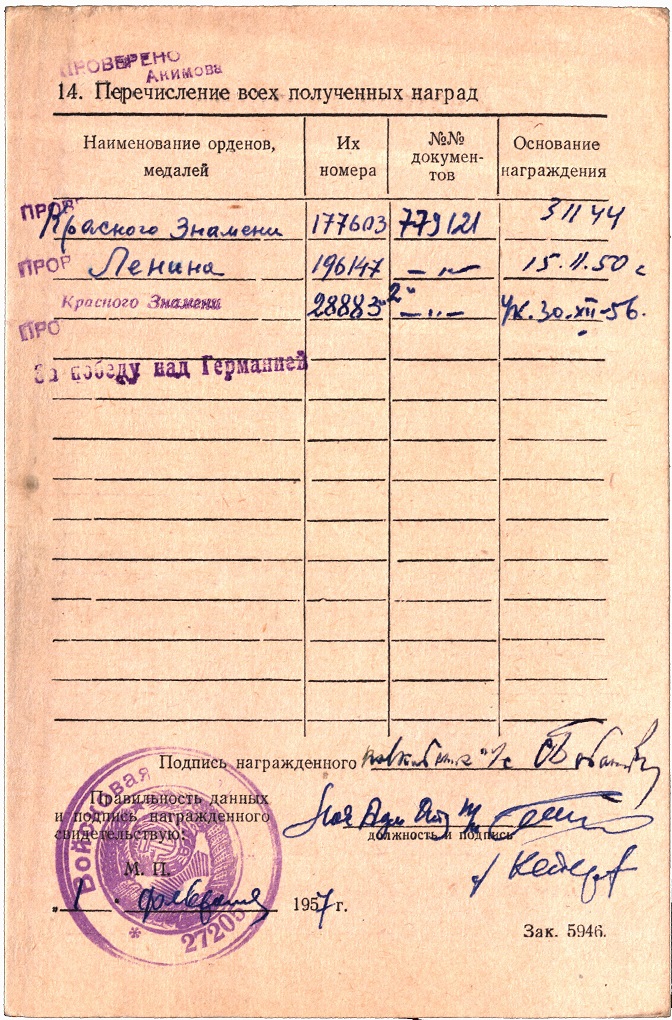 ПРОВЕРЕНО
Акимова
14. Перечисление всех полученных наград
Наименование орденов, медалей
Их номера
№№ докумен-тов
Основание награждения
ПРОВ
Красного Знамени 177603 779121 3 11 44
ПРОР
Ленина 196147 —"— 15.11.50 г
Красного Знамени 28883 "2" —"— Ук. 30.XII-56.
ПРО
За победу над Германией
Подпись награжденного
Правильность данных
и подпись награжденного
свидетельствую:
должность и подпись
М. П.
"1" февраля 1957 г.
Войсковая
* 27205
Зак. 5946.